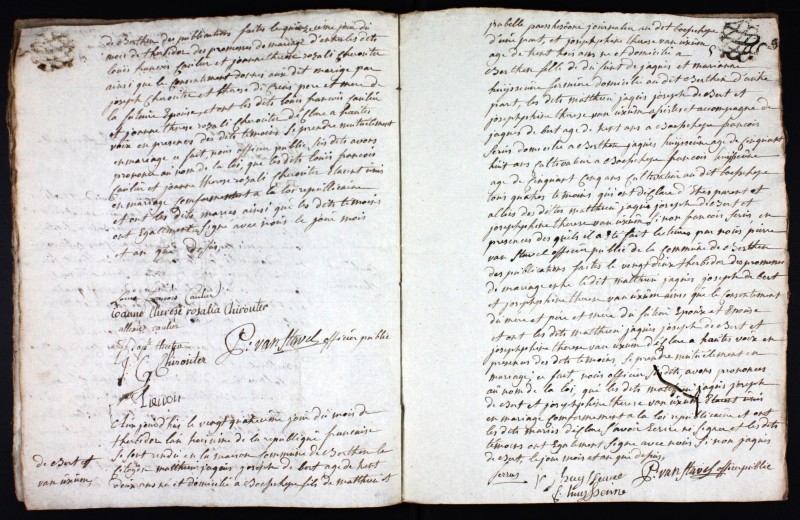 de Berthen des publications faites le quinzieme jour du
mois de thermidor des promesses de mariage d'entre les dits
louis francois Caulier et jeanne therese rosali Chirouter
ainsi que le consentement donnes au dit mariage par
joseph Chirouter et pere et mere de
la future Epouse et ont les dits louis francois Caulier
et jeanne therese rosali Chirouter declare a hautes
voix en presences des dits temoins se prendre mutuelement
en mariage ce fait nous officier public sus dits avons
prononce au nom de la loi que les dits louis francois
Caulier et jeanne therese rosali Chirouter etaient unis
en mariage conformement a la loi republicaine
et ont les dits maries ainsi que les dits temoins
ont egalement signe avec nous le jour mois
et an que dessus
louis francois Caulier
Joanne Therese rosalia Chirouter
Caulier
Chirouter
P. van Stavel officier public
aujourd'hui le vingt quatrieme jour du mois de
thermidor l'an troisieme de la republique francaise
se sont rendu en la maison commune de Berthen le
citoyen matthieu jaques joseph de Bert age de
ans ne et domicilie a Boeschepe fils de matthieu et
de Bert et
van uxum
isabelle journalier au dit boeschepe
d'une part, et josephphine therese van uxum
age de trent trois ans ne et domicilie a
Berthen fille de du funt de jaques et marianne
huyssenne fermiere domicilie au dit Berthen d'autre
part, les dits matthieu jaques joseph de Bert et
josephphine therese van uxum assistes et accompagne de
jaques de bert age de ans a Boeschepe francois
Serus domicilie a Berthen jaques huyssenne age de cinquant
huit ans cultivateur a boeschepe francois huyssenne
age de cinquant cinq ans cultivateur au dit boeschepe
tous quatres temoins qui ont declare d'etres parent et
allies des dites matthieu jaques joseph de Bert et
josephphine therese van uxum si non francois Serus en
presences des quels il a ete fait lectures par nous pierre
van Stavel officier public de la commune de Berthen
des publications faites le vingt deux thermidor des promesses
de mariage entre le dit matthieu jaques joseph de bert
et josephphine therese van uxum ainsi que le consentement
du mere et pere et mere du futeur Epoux et Epouse
et ont les dits matthieu jaques joseph de Bert et
josephphine therese van uxum declare a haute voix en
presences des dits temoins se prendre mutuelement en
mariage, ce fait nous officier sus dits avons prononces
au nom de la loi que les dits matthieu jaques joseph
de Bert et josephphine therese van uxum etaient unis
en mariage conformement a la loi republicaine et ont
les dits maries declare ne signe et les dits
temoins ont egalement signe avec nous si non jaques
de Bert, le jour mois et an que dessus
serus
J huyssenne
f. huyssenne
P. van Stavel officier public